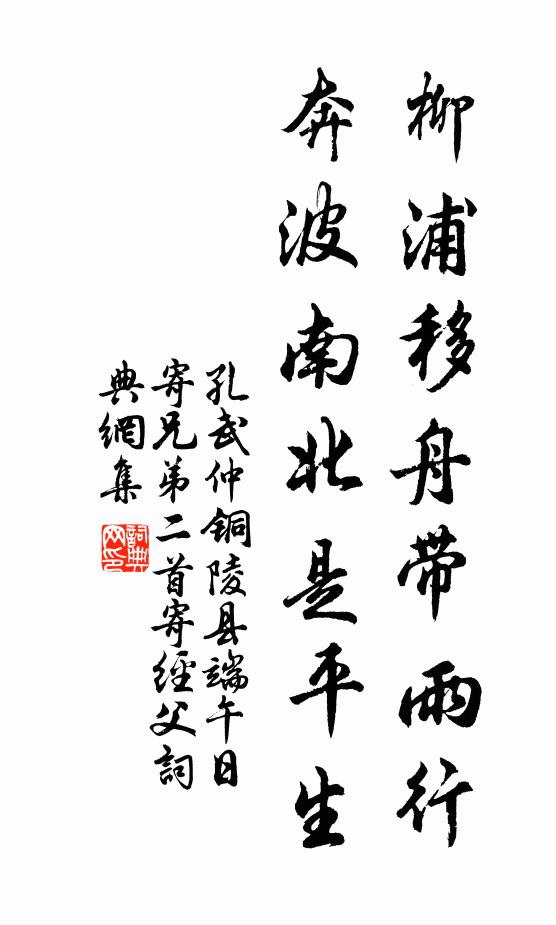 柳浦移舟带雨行
奔波南北是平生
孔武仲铜陵县端午日
寄兄弟二首寄經父詞
典網集
詞典
网印